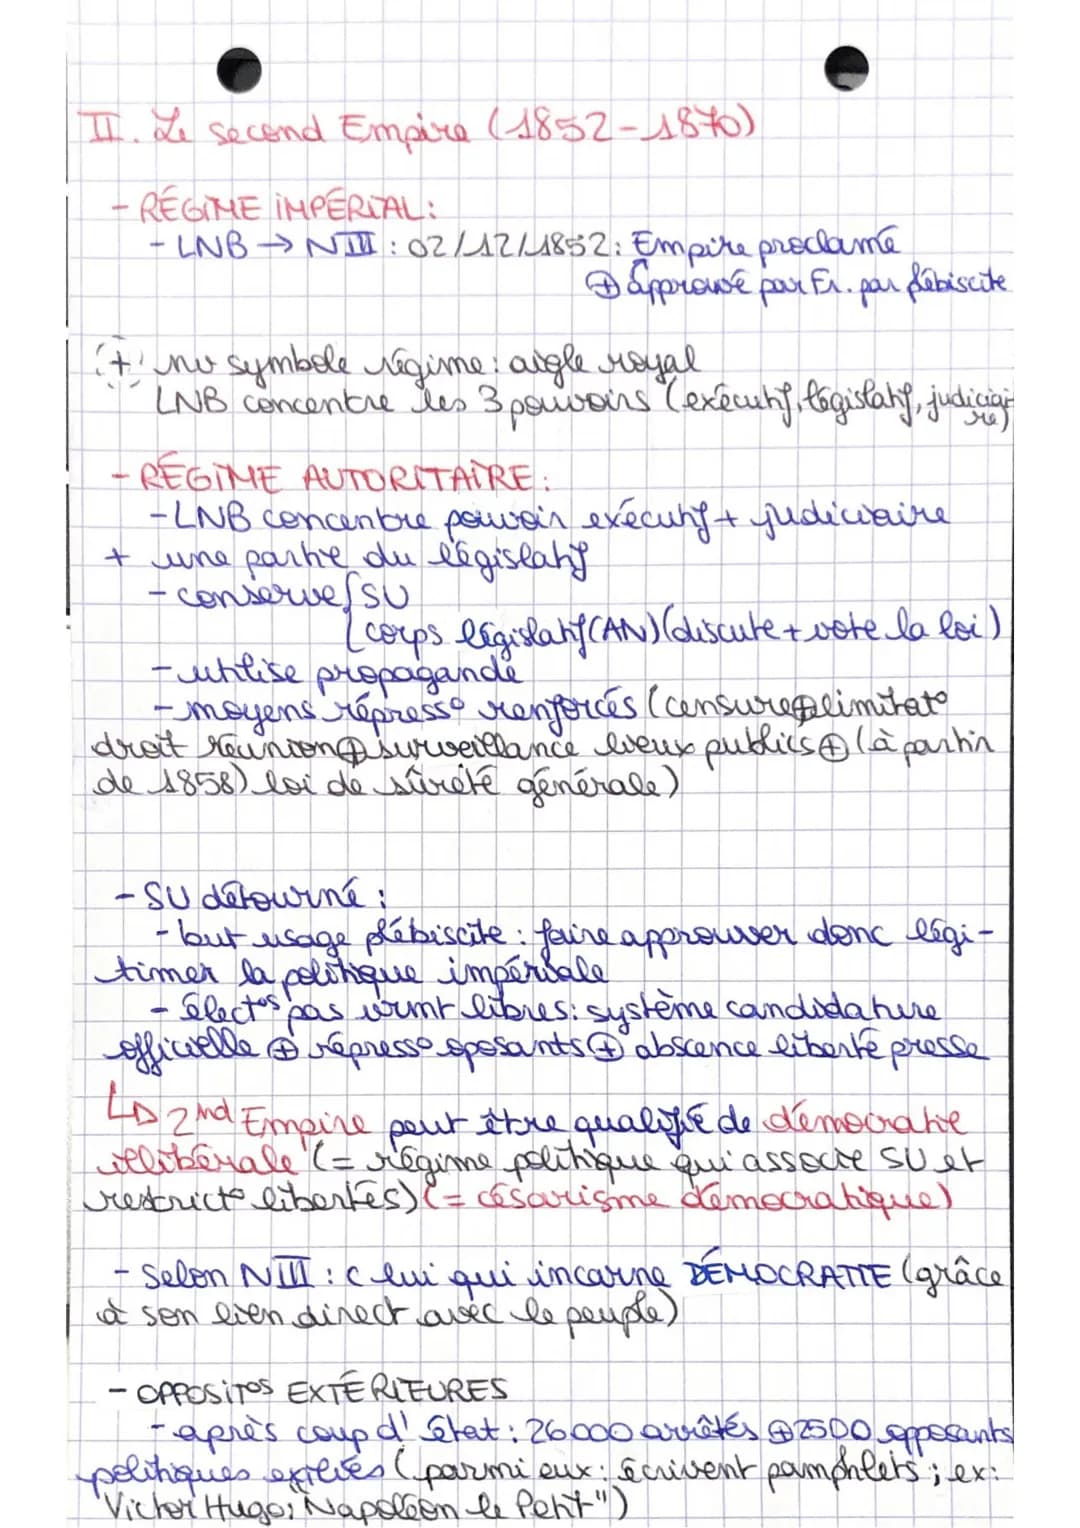 II. Le second Empire (1852-1870)
- RÉGIME IMPÉRIAL:
- LNB → NIII : 02/12/1852: Empire proclamé
⊕ approuvé par Fr. par plébiscite
(+) nv symbole régime : aigle royal
LNB concentre les 3 pouvoirs (exécutif, législatif, judiciai-
re)
- RÉGIME AUTORITAIRE:
- LNB concentre pouvoir exécutif + judiciaire
+ une partie du législatif
- conserve { SU
{ corps législatif (AN) (discute + vote la loi)
- utilise propagande
- moyens répress° renforcés (censure ⊕ limitat°
droit réunion ⊕ surveillance lieux publics ⊕ (à partir
de 1858) loi de sûreté générale)
- SU détourné :
- but usage plébiscite : faire approuver donc légi-
timer la politique impériale
- élect°s pas vrmt libres : système candidature
officielle ⊕ répress° oposants ⊕ abscence liberté presse
↳ 2nd Empire peut être qualifié de démocratie
illibérale (= régime politique qui associe SU et
restrict° libertés) (= césarisme démocratique)
- Selon NIII : c lui qui incarne DÉMOCRATIE (grâce
à son lien direct avec le peuple)
- OPPOSIT°S EXTÉRIEURES
- après coup d'État : 26000 arrêtés ⊕ 2500 opposants
politiques exilés (parmi eux : écrivent pamphlets ; ex:
Victor Hugo; "Napoléon le Petit")